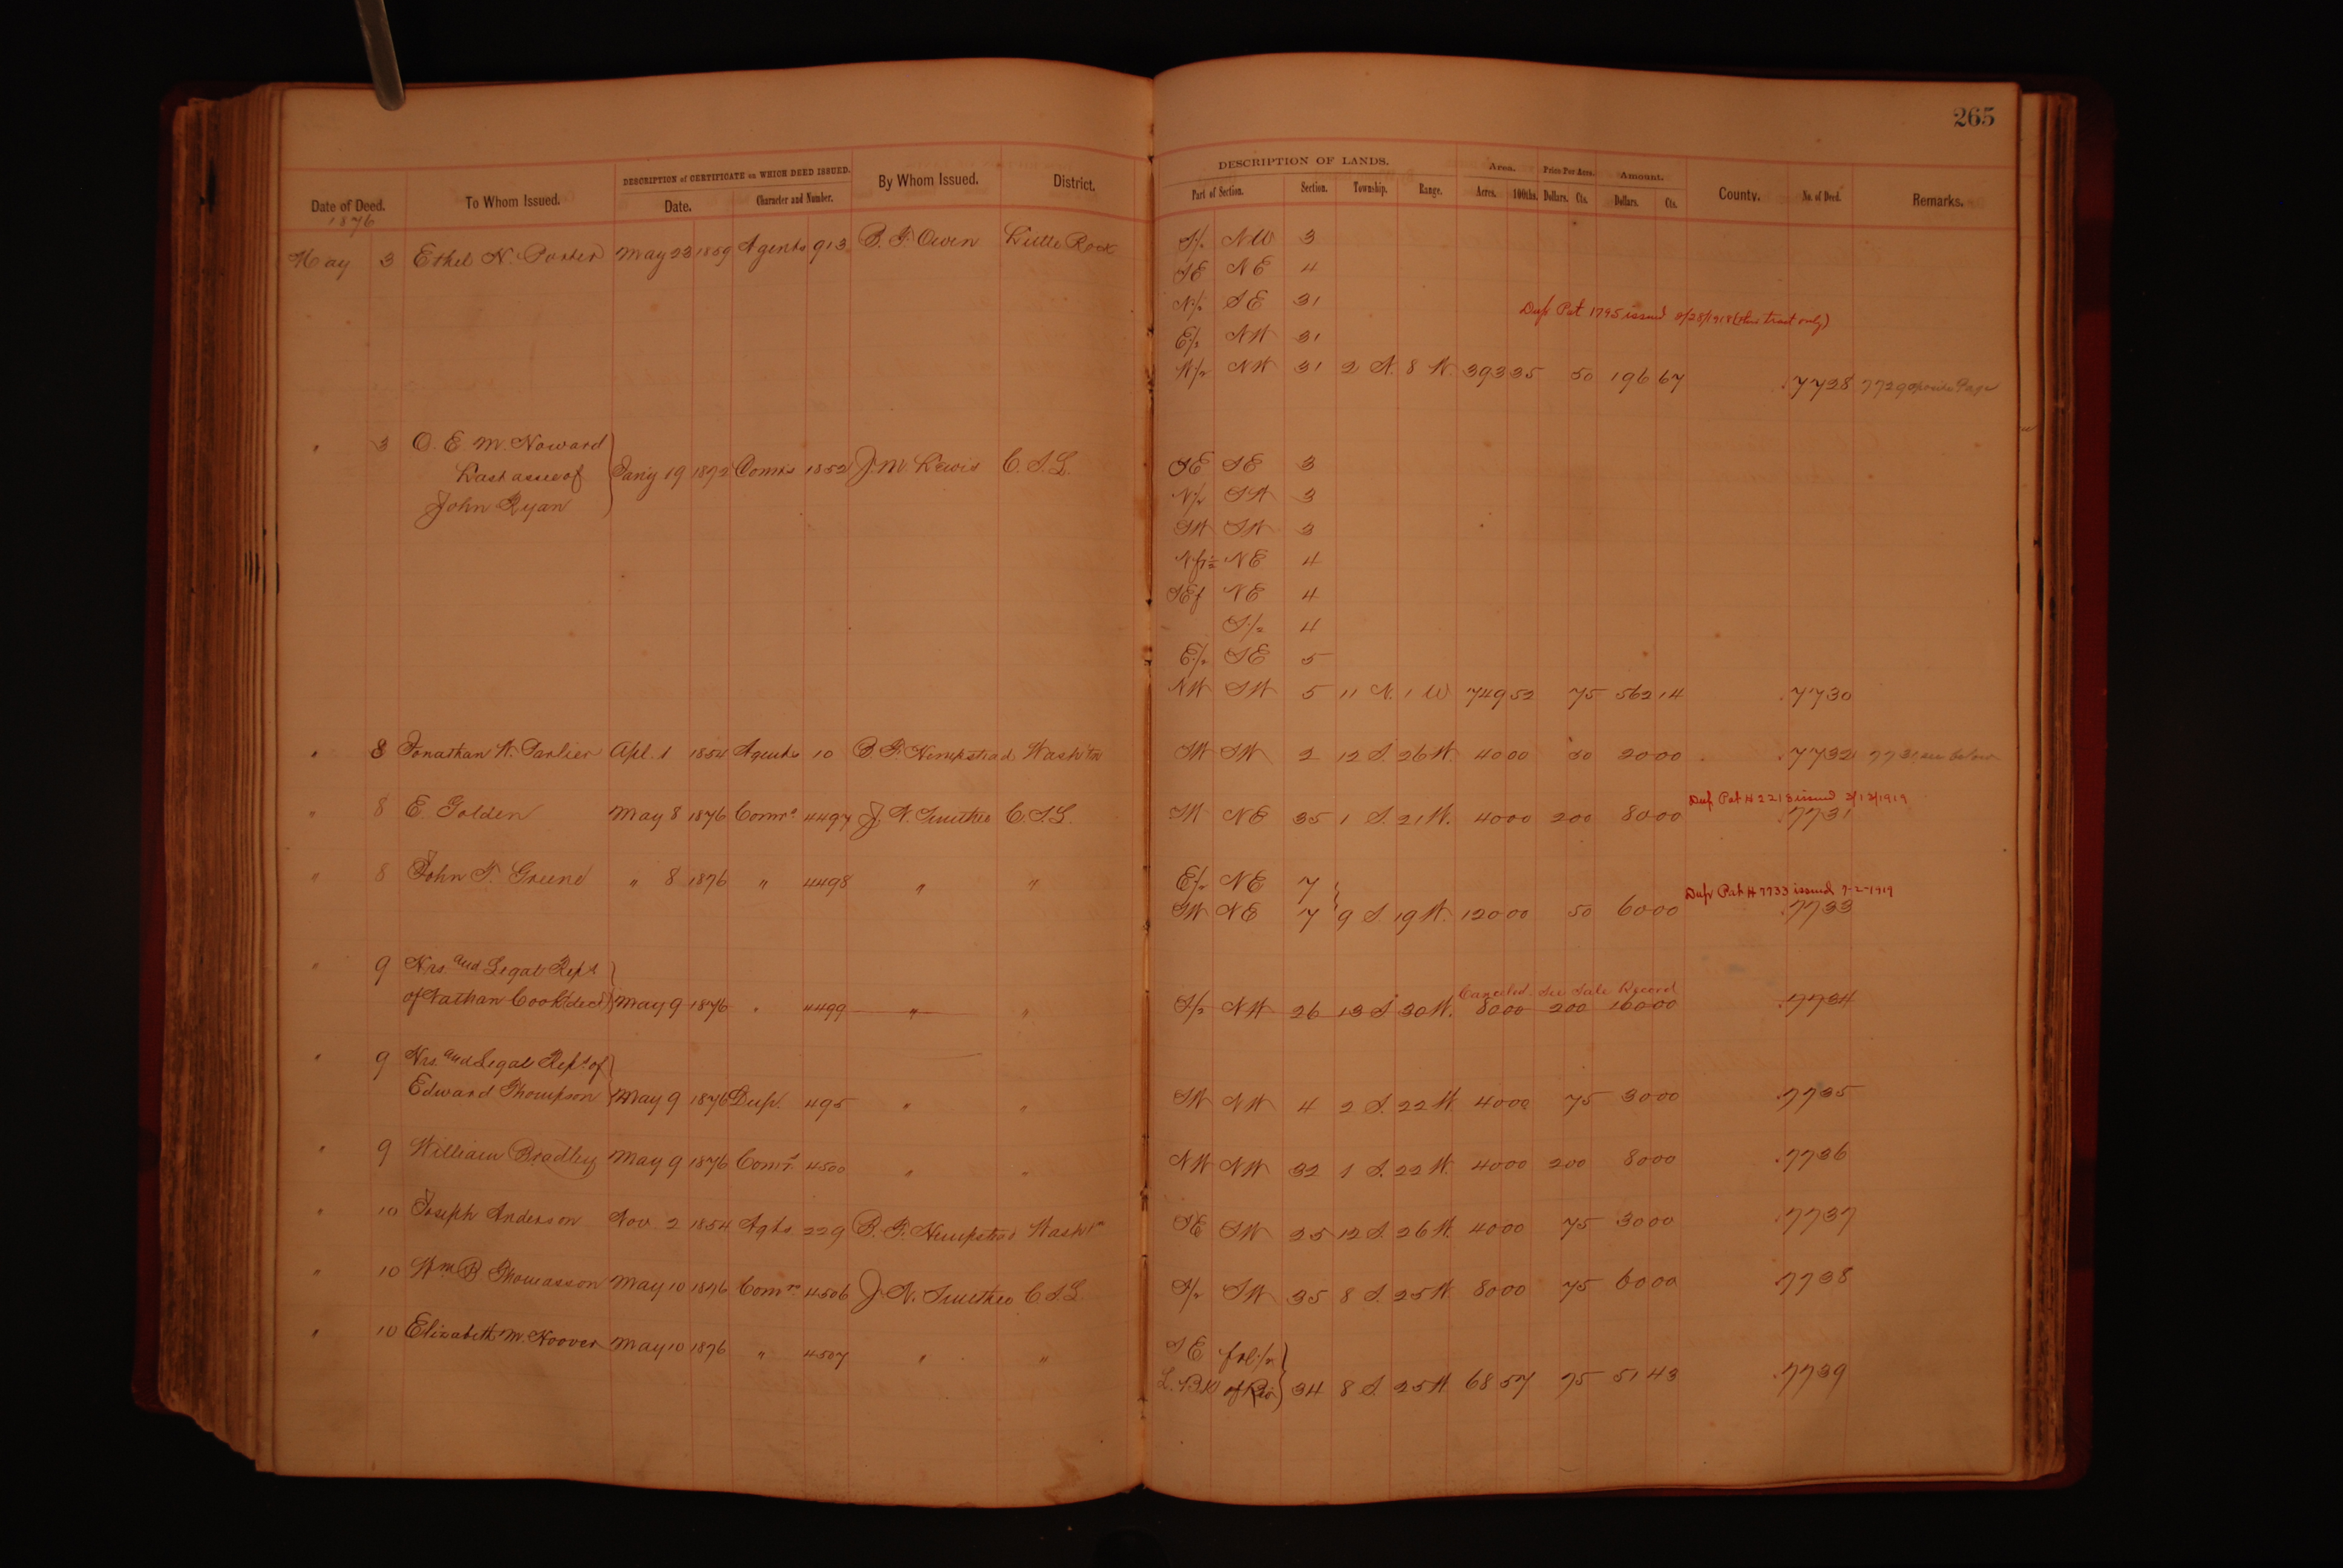 265
DESCRIPTION OF LANDS.
Date of Deed. To Whom Issued. DESCRIPTION of CERTIFICATE on WHICH DEED ISSUED. By Whom Issued. District. Part of Section. Section. Township. Range. Area. Price Per Acre. Amount. County. No. of Deed. Remarks.
Date. Character and Number. Acres. 100ths. Dollars. Cts. Dollars. Cts.
1876
May 3 Ethel N. Porter May 23 1859 Agents 913 B. F. Owen Little Rock S/2 NW 3
SE NE 4
N/2 SE 31
Dup Pat 1795 issued (this tract only)
E/2 NW 31
W/2 NW 31 2 N. 8 W. 393 35 50 196 67 7728 7729 opposite Page
" 3 O. E. M. Howard
Last assee of Jan'y 19 1872 Comrs 1852 J. M. Lewis C. S. L. SE SE 3
John Ryan N/2 SW 3
SW SW 3
N fr ½ NE 4
SE f NE 4
S/2 4
E/2 SE 5
NW SW 5 11 N. 1 W 749 52 75 562 14 7730
" 8 Jonathan W. Parlier Apl. 1 1854 Agents 10 B. F. Hempstead Wash'tn SW SW 2 12 S. 26 W. 40 00 50 20 00 7732 7731 see below
Dup Pat # 2213 issued 3/13/1919
" 8 E. Golden May 8 1876 Comr's 4497 J. N. Smithee C. S. L. SW NE 35 1 S. 21 W. 40 00 2 00 80 00 7731
" 8 John T. Greene " 8 1876 " 4498 " " E/2 NE 7
Dup Pat # 7733 issued 7-2-1919
SW NE 7 9 S 19 W. 120 00 50 60 00 7733
" 9 Hrs. and Legal Reps
Canceled. See Sale Record
of Nathan Cook (decd) May 9 1876 " 4499 " " S/2 NW 26 13 S 30 W. 80 00 2 00 160 00 7734
" 9 Hrs. and Legal Reps of
Edward Thompson May 9 1876 Dup. 495 " " SW NW 4 2 S. 22 W. 40 00 75 30 00 7735
" 9 William Bradley May 9 1876 Comrs 4500 " " NW NW 32 1 S. 22 W. 40 00 2 00 80 00 7736
" 10 Joseph Anderson Nov. 2 1854 Agts 229 B. F. Hempstead Wash'tn SE SW 25 12 S. 26 W. 40 00 75 30 00 7737
" 10 Wm. B Thomasson May 10 1876 Comrs 4506 J. N. Smithee C S L. S/2 SW 35 8 S. 25 W. 80 00 75 60 00 7738
" 10 Elizabeth M. Hoover May 10 1876 " 4507 " " SE frl /2
L. Bk of Riv 34 8 S. 25 W 68 57 75 51 43 7739